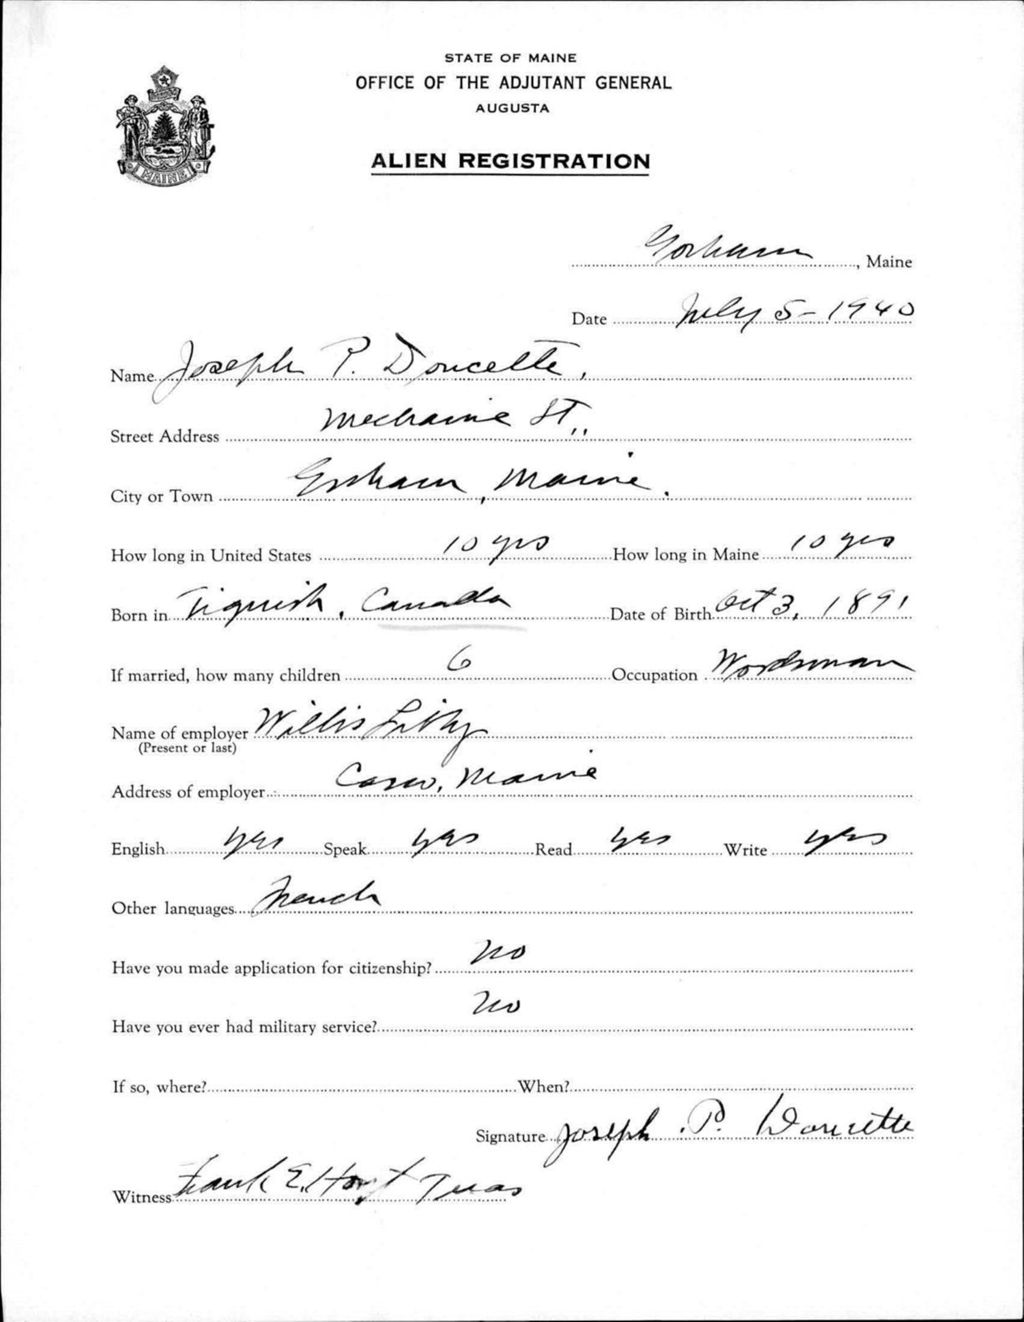 STATE OF MAINE
OFFICE OF THE ADJUTANT GENERAL
AUGUSTA
ALIEN REGISTRATION
MAINE
Gorham, Maine
Date July 5-1940
Name Joseph P. Doucette,
Street Address Mechanic St.,
City or Town Gorham, Maine.
How long in United States 10 yrs How long in Maine 10 yrs
Born in Tignish, Canada Date of Birth Oct 3, 1891
If married, how many children 6 Occupation Woodsman
Name of employer Willis Libby
(Present or last)
Address of employer Casco, Maine
English yes Speak yes Read yes Write yes
Other languages French
Have you made application for citizenship? no
Have you ever had military service? no
If so, where? When?
Signature Joseph P. Doucette
Witness Frank E. Hoyt Treas